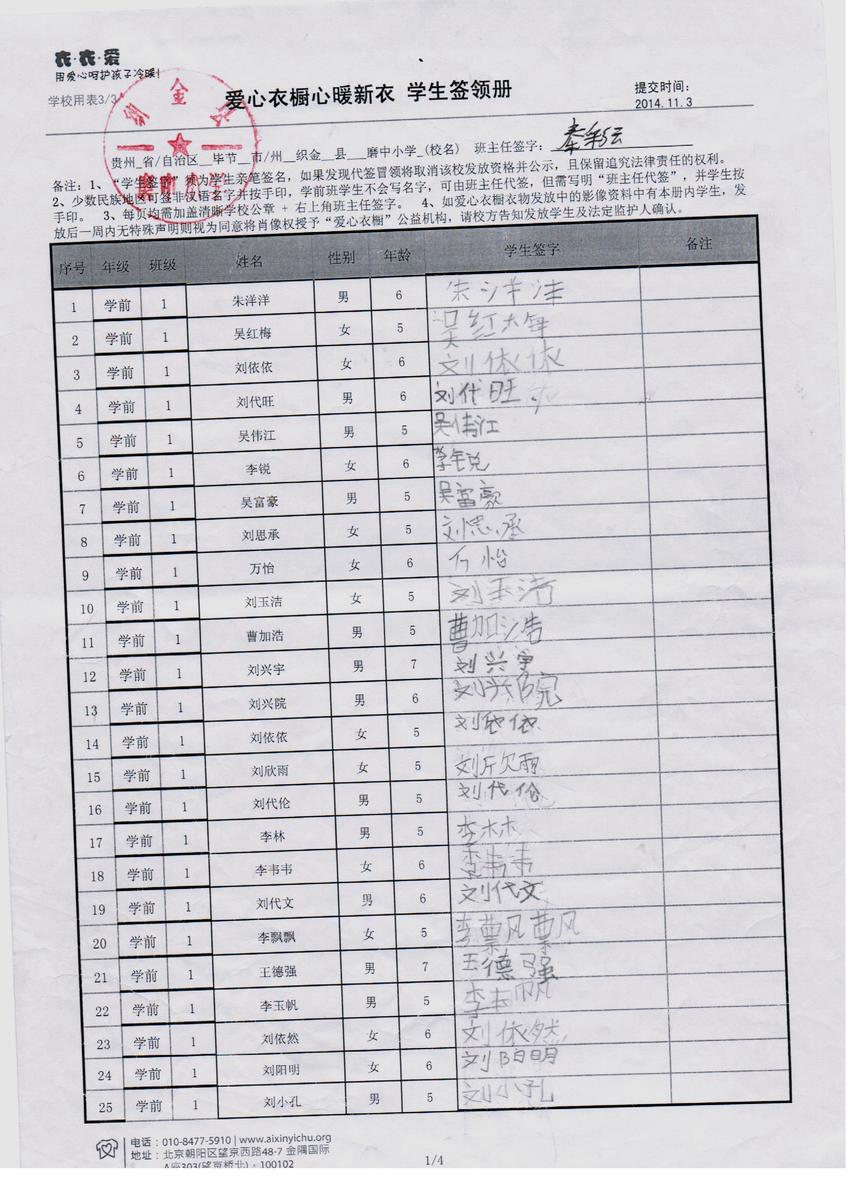 衣·衣·爱
用爱心呵护孩子冷暖!
学校用表3/3
爱心衣橱心暖新衣 学生签领册
提交时间:
2014.11.3
贵州_省/自治区__毕节__市/州__织金_县___磨中小学_(校名) 班主任签字:
备注:1、“学生签字”须为学生亲笔签名,如果发现代签冒领将取消该校发放资格并公示,且保留追究法律责任的权利。
2、少数民族地区可签非汉语名字并按手印,学前班学生不会写名字,可由班主任代签,但需写明“班主任代签”,并学生按
手印。 3、每页均需加盖清晰学校公章 + 右上角班主任签字。 4、如爱心衣橱衣物发放中的影像资料中有本册内学生,发
放后一周内无特殊声明则视为同意将肖像权授予“爱心衣橱”公益机构,请校方告知发放学生及法定监护人确认。
序号 年级 班级 姓名 性别 年龄 学生签字 备注
1 学前 1 朱洋洋 男 6 朱洋洋
2 学前 1 吴红梅 女 5 吴红梅
3 学前 1 刘依依 女 6 刘依依
4 学前 1 刘代旺 男 6 刘代旺
5 学前 1 吴伟江 男 5 吴伟江
6 学前 1 李锐 女 6 李锐
7 学前 1 吴富豪 男 5 吴富豪
8 学前 1 刘思承 女 5 刘思承
9 学前 1 万怡 女 6 万怡
10 学前 1 刘玉洁 女 5 刘玉洁
11 学前 1 曹加浩 男 5 曹加浩
12 学前 1 刘兴宇 男 7 刘兴宇
13 学前 1 刘兴院 男 6 刘兴院
14 学前 1 刘依依 女 5 刘依依
15 学前 1 刘欣雨 女 5 刘欣雨
16 学前 1 刘代伦 男 5 刘代伦
17 学前 1 李林 男 5 李林
18 学前 1 李韦韦 女 6 李韦韦
19 学前 1 刘代文 男 6 刘代文
20 学前 1 李飘飘 女 5 李飘飘
21 学前 1 王德强 男 7 王德强
22 学前 1 李玉帆 男 5 李玉帆
23 学前 1 刘依然 女 6 刘依然
24 学前 1 刘阳明 女 6 刘阳明
25 学前 1 刘小孔 男 5 刘小孔
电话:010-8477-5910 | www.aixinyichu.org
地址:北京朝阳区望京西路48-7 金隅国际
A座303(望京桥北)· 100102
1/4